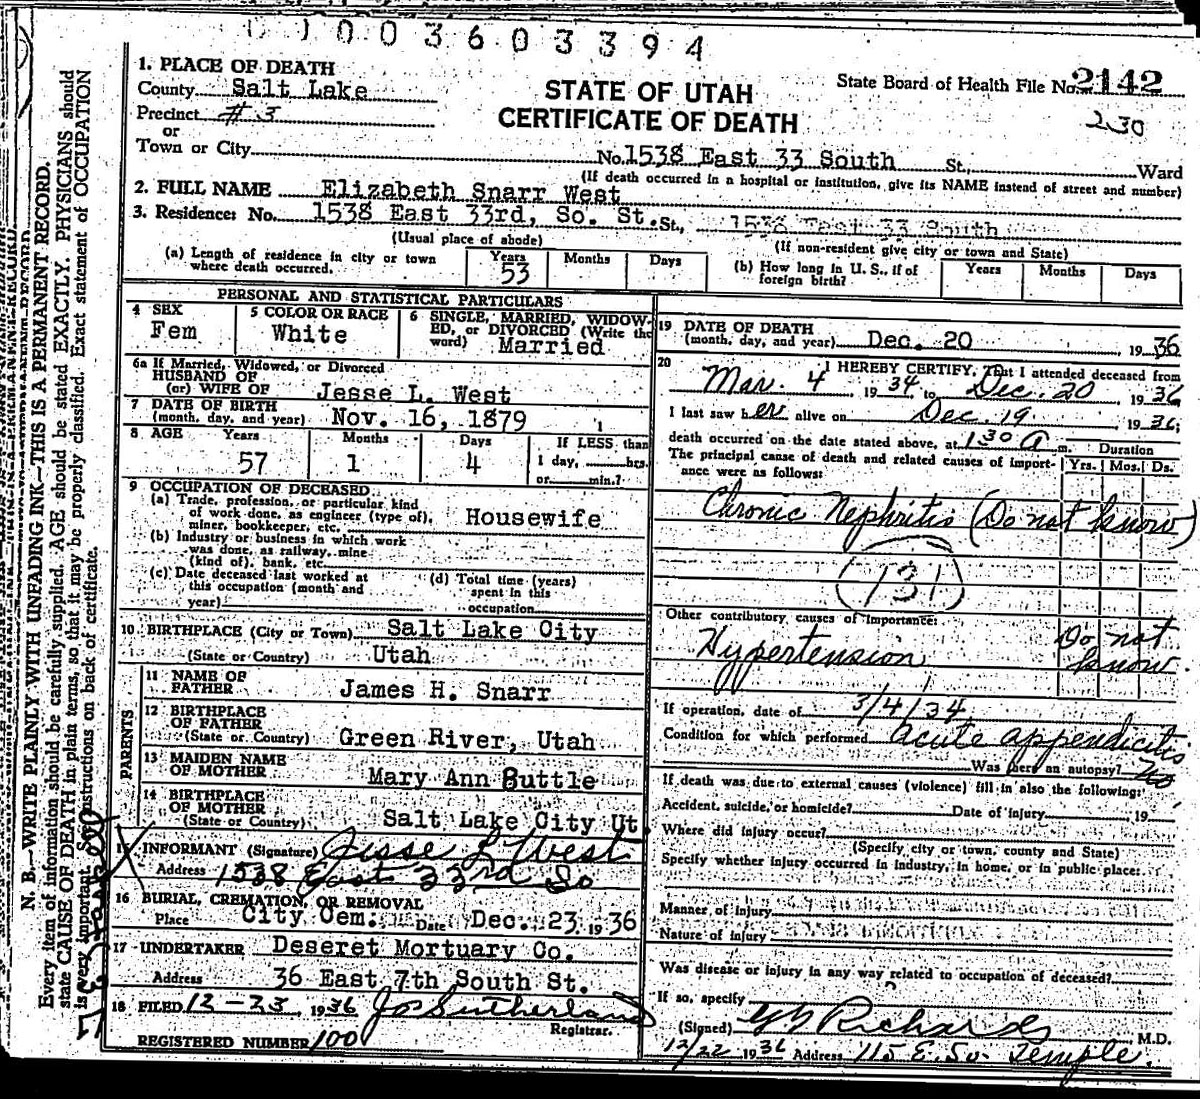 1003603394
1. PLACE OF DEATH
County Salt Lake
Precinct #3
or
Town or City
STATE OF UTAH
CERTIFICATE OF DEATH
State Board of Health File No. 2142
230
No. 1538 East 33 South St., Ward
(If death occurred in a hospital or institution, give its NAME instead of street and number)
2. FULL NAME Elizabeth Snarr West
3. Residence: No. 1538 East 33rd, So. St. St., 1538 East 33 South
(Usual place of abode) (If non-resident give city or town and State)
(a) Length of residence in city or town where death occurred. Years 53 Months Days
(b) How long in U. S., if of foreign birth? Years Months Days
PERSONAL AND STATISTICAL PARTICULARS
4 SEX Fem
5 COLOR OR RACE White
6 SINGLE, MARRIED, WIDOW-
ED, or DIVORCED (Write the
word) Married
6a If Married, Widowed, or Divorced
HUSBAND OF
(or) WIFE OF Jesse L. West
7 DATE OF BIRTH
(month, day, and year) Nov. 16, 1879
8 AGE Years Months Days If LESS than
57 1 4 1 day, hrs.
or min.?
9 OCCUPATION OF DECEASED
(a) Trade, profession, or particular kind
of work done, as engineer (type of),
miner, bookkeeper, etc. Housewife
(b) Industry or business in which work
was done, as railway, mine
(kind of), bank, etc.
(c) Date deceased last worked at
this occupation (month and
year)
(d) Total time (years)
spent in this
occupation
10 BIRTHPLACE (City or Town) Salt Lake City
(State or Country) Utah
PARENTS
11 NAME OF
FATHER James H. Snarr
12 BIRTHPLACE
OF FATHER
(State or Country) Green River, Utah
13 MAIDEN NAME
OF MOTHER Mary Ann Buttle
14 BIRTHPLACE
OF MOTHER
(State or Country) Salt Lake City Ut.
15 INFORMANT (Signature) Jesse L West
Address 1538 East 33rd So
16 BURIAL, CREMATION, OR REMOVAL
Place City Cem. Date Dec. 23, 1936
17 UNDERTAKER Deseret Mortuary Co.
Address 36 East 7th South St.
18 FILED 12-23, 1936 Jos Sutherland
Registrar.
REGISTERED NUMBER 100
19 DATE OF DEATH
(month, day, and year) Dec. 20, 1936
20 I HEREBY CERTIFY, That I attended deceased from
Mar. 4 1934 to Dec. 20 1936
I last saw her alive on Dec. 19 1936;
death occurred on the date stated above, at 1 30 a m.
Duration
The principal cause of death and related causes of import-
ance were as follows: Yrs. Mos. Ds.
Chronic Nephritis (Do not know)
131
Other contributory causes of importance:
Hypertension Do not
know
If operation, date of 3/4/34
Condition for which performed acute appendicitis
Was there an autopsy? no
If death was due to external causes (violence) fill in also the following:
Accident, suicide, or homicide? Date of injury 19
Where did injury occur?
(Specify city or town, county and State)
Specify whether injury occurred in industry, in home, or in public places.
Manner of injury
Nature of injury
Was disease or injury in any way related to occupation of deceased?
If so, specify
(Signed) G G Richards M.D.
12/22 1936 Address 115 E. So. Temple.
N. B.—WRITE PLAINLY WITH UNFADING INK—THIS IS A PERMANENT RECORD.
Every item of information should be carefully supplied. AGE should be stated EXACTLY. PHYSICIANS should
state CAUSE OF DEATH in plain terms, so that it may be properly classified. Exact statement of OCCUPATION
is very important. See instructions on back of certificate.